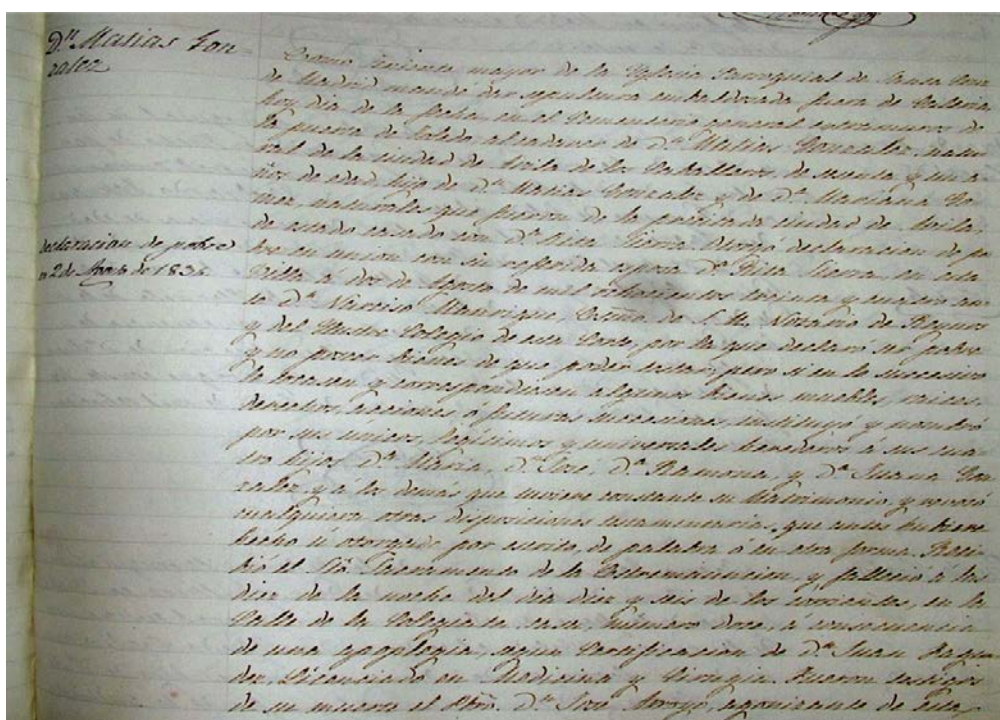 Dn. Matias Gon
zalez
Como Teniente mayor de la Yglesia Parroquial de Santa Cruz
de Madrid mandé dar sepultura embaldosada fuera de Galeria
hoy dia de la fecha en el Cementerio general extramuros de
la puerta de Toledo al cadaver de Dn. Matias Gonzalez, natu
ral de la ciudad de Avila de los Caballeros, de y un a
ños de edad, hijo de Dn. Matias Gonzalez y de Da. Mariana
naturales que fueron de la precitada ciudad de Avila,
de estado casado con Da. Rita Sierra. Otorgó declaracion de po
Declaracion de pobre
en 2 de Agosto de 1834
bre en union con su referida esposa Da. Rita Sierra en esta
Villa á dos de Agosto de mil ochocientos treinta y cuatro an
te Dn. Narciso Manrique Escno. de S. M., Notario de Reynos
y del Ilustre Colegio de esta Corte, por la que declaró ser pobre
y no poseer bienes de que poder testar, pero si en lo sucesivo
le tocasen y correspondiesen algunos bienes muebles, raices,
derechos, acciones ó futuras sucesiones, instituyó y nombró
por sus unicos, legitimos y universales herederos á sus cua
tro hijos Da. Maria, Dn. José, Da. Ramona, y Da. Juana Gon
zalez y á los demás que tuviere constante su Matrimonio, y revocó
cualquiera otras disposiciones testamentarias, que antes hubiere
hecho u otorgado por escrito, de palabra ó en otra forma. Reci
bió el Sto. Sacramento de la Extremauncion, y falleció á las
diez de la noche del dia diez y seis de los corrientes, en la
Calle de la Colegiata, casa, numero doce, á consecuencia
de una apoplegia, segun Certificacion de Dn. Juan
Licenciado en Medicina y Cirugia. Fueron testigos
de su muerte el Pbro. Dn. José Arroyo, agonizante de esta